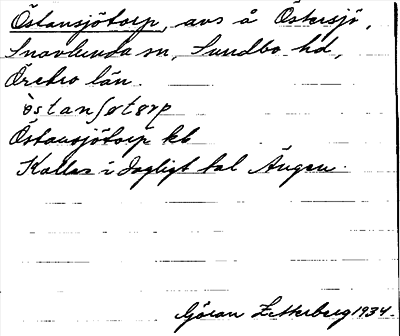 Östansjötorp, avs å Östersjö,
Snavlunda sn, Sundbo hd,
Örebro län.
òstanʃøtɵrp
Östansjötorp kb
Kallas i dagligt tal Ängen.
Göran Zetterberg 1934.